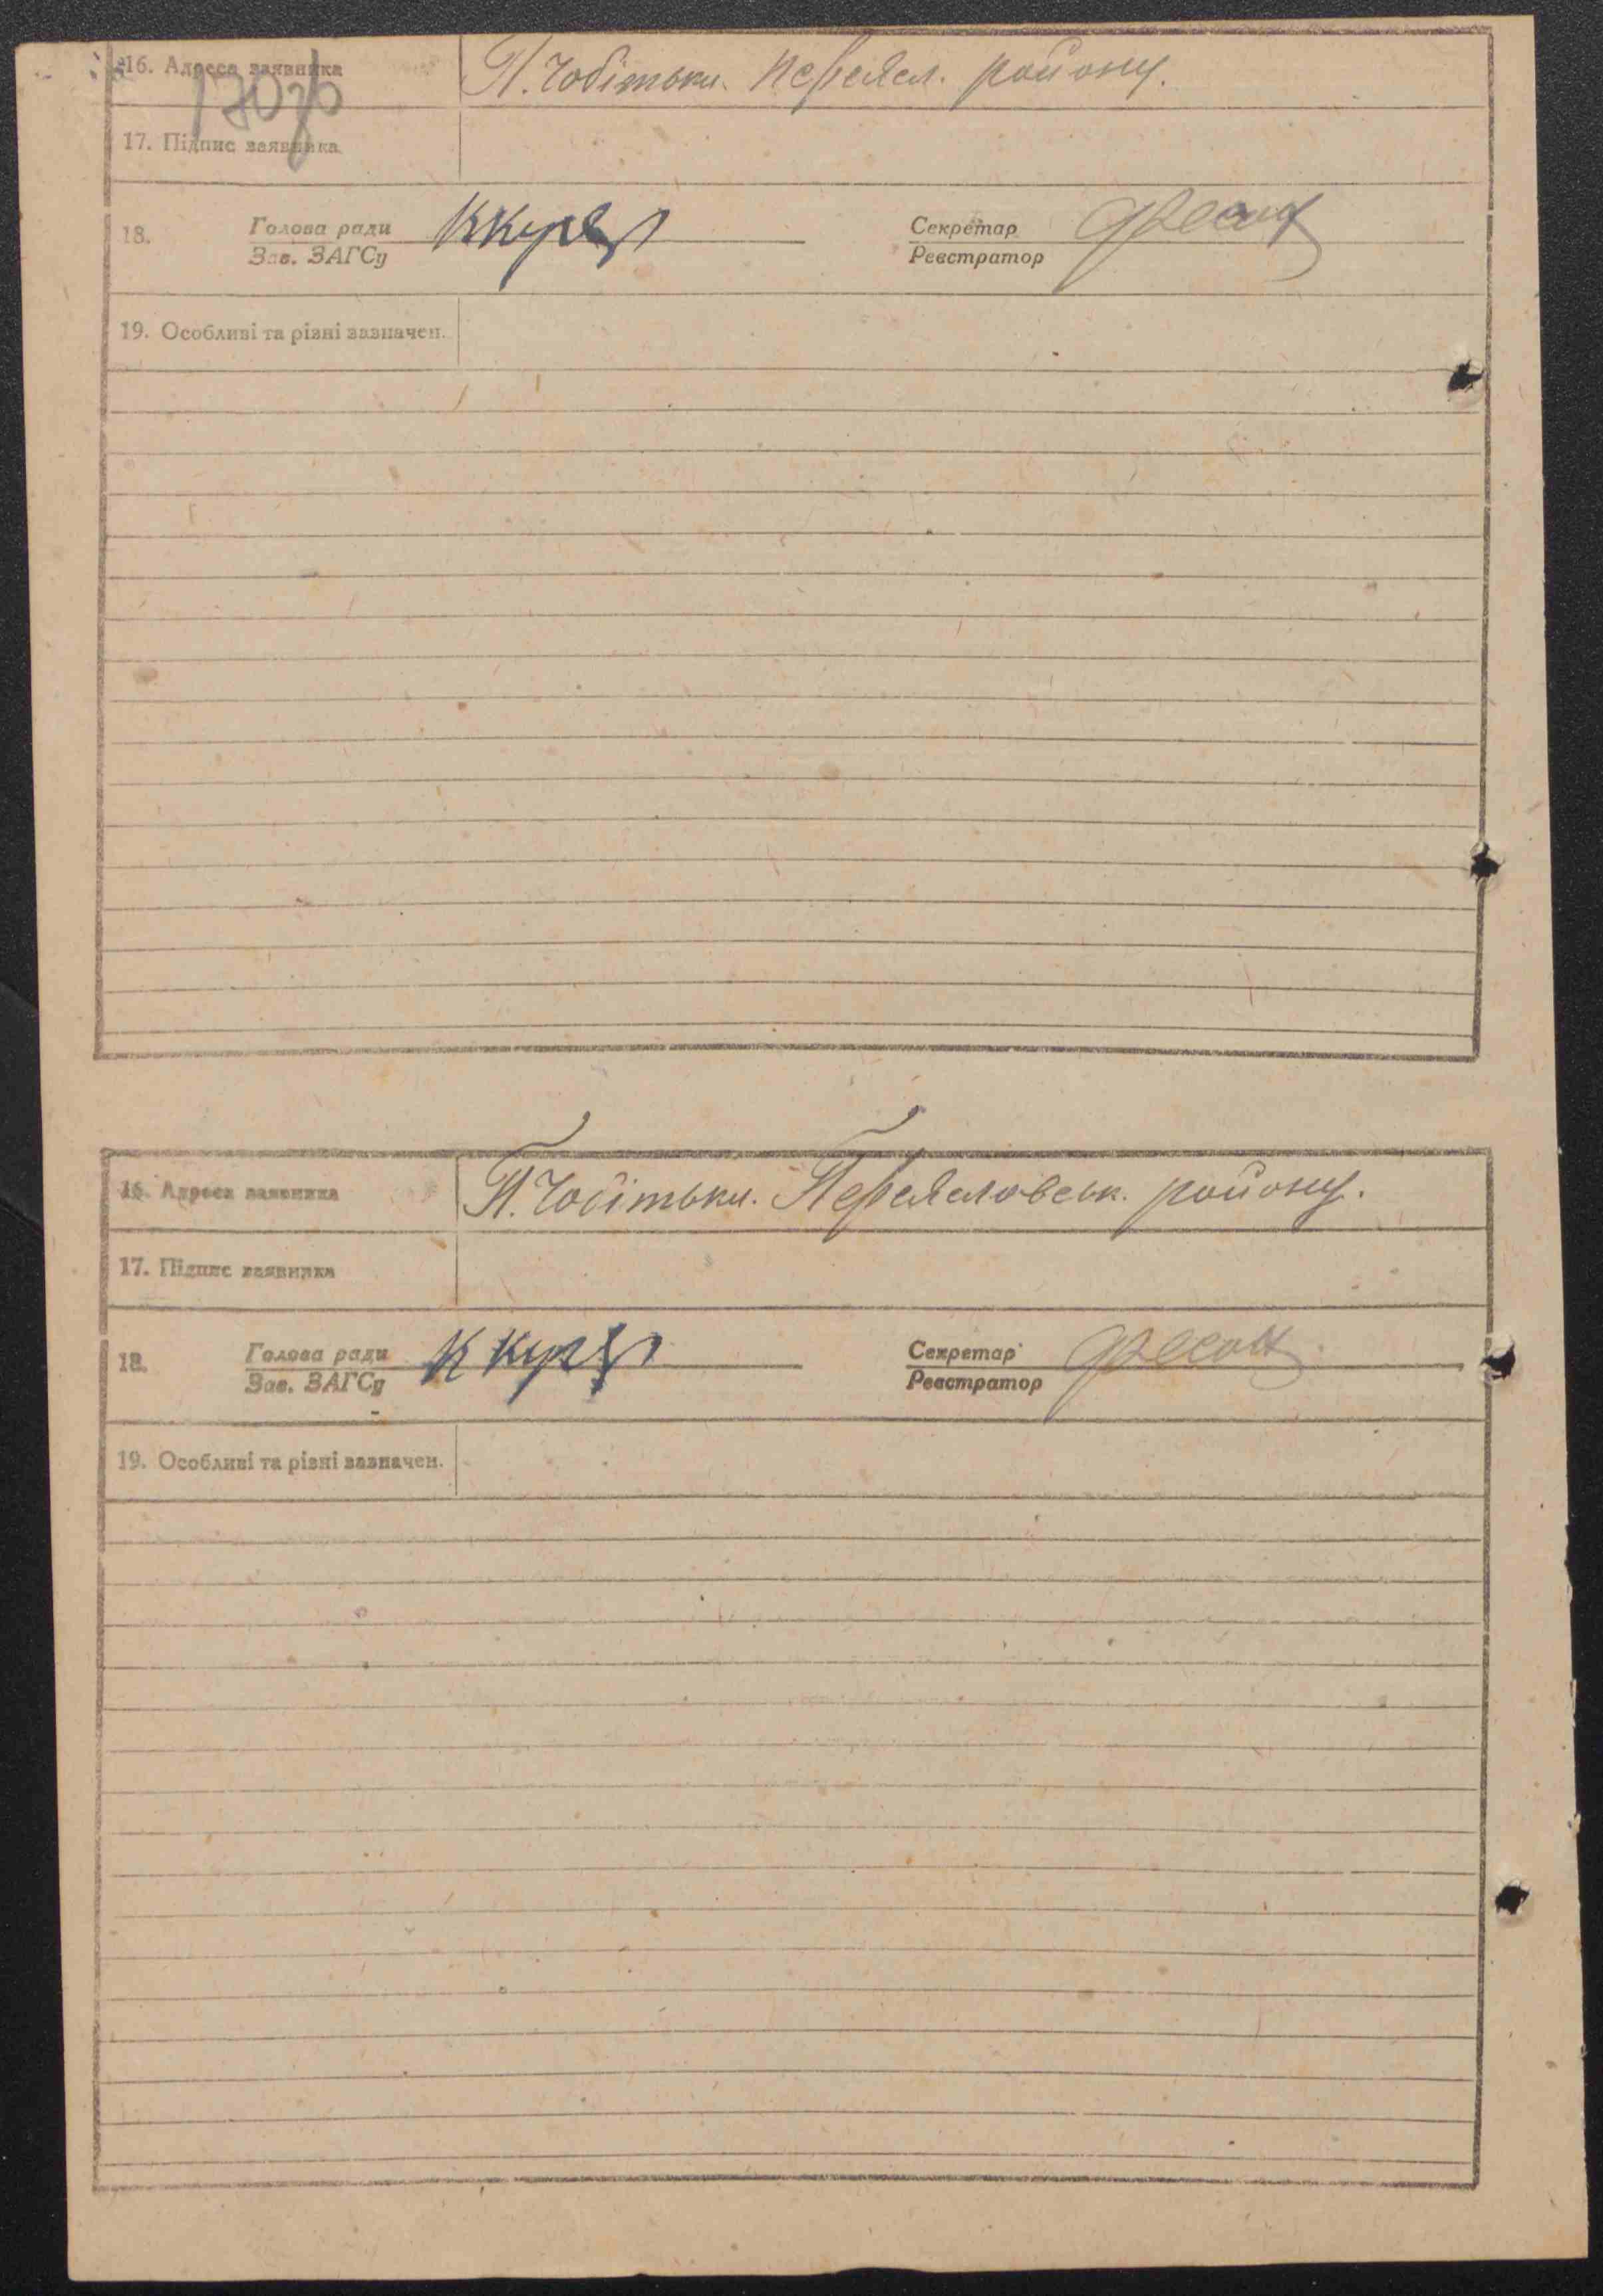 16. Адреса заявника П. Чобітьки. Переясл. району.
17. Підпис заявника
18. Голова ради Секретар
Зав. ЗАГСу Реєстратор
19. Особливі та різні зазначен.
16. Адреса заявника П. Чобітьки. Переяславськ. району.
17. Підпис заявника
18. Голова ради Секретар
Зав. ЗАГСу Реєстратор
19. Особливі та різні зазначен.